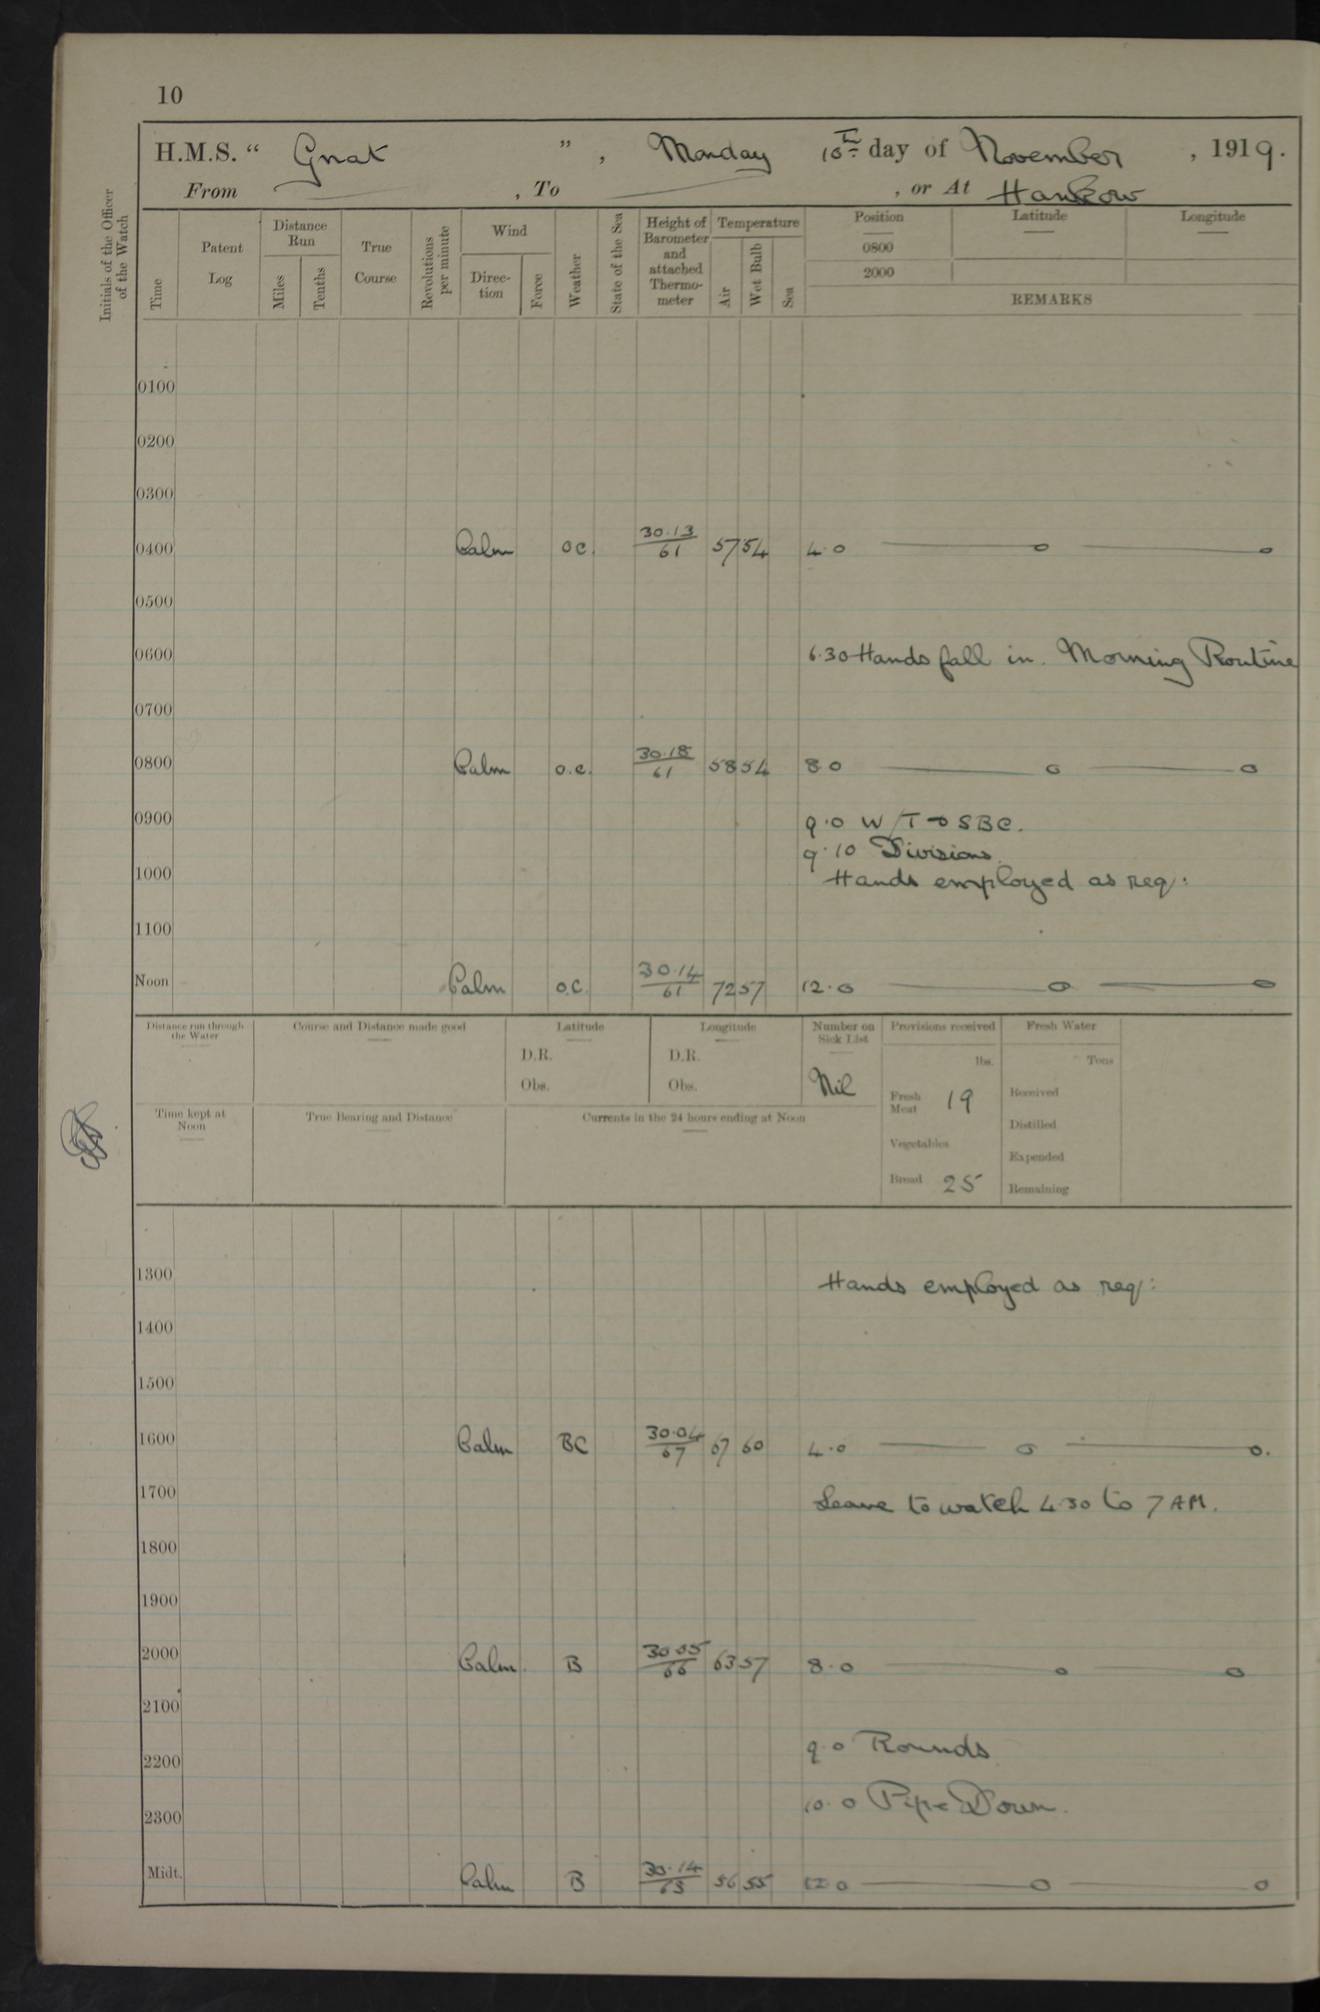 10
H.M.S. "Gnat", Monday 10th day of November, 1919.
From , To , or At Hankow
Initials of the Officer of the Watch
Time
Patent Log
Distance Run
Miles
Tenths
True Course
Revolutions per minute
Wind
Direction
Force
Weather
State of the Sea
Height of Barometer and attached Thermometer
Temperature
Air
Wet Bulb
Sea
Position
Latitude
Longitude
0800
2000
REMARKS
0100
0200
0300
0400 Calm oc. 30.13/61 57 54 4.0 — o — o
0500
0600 6.30 Hands fall in. Morning Routine
0700
0800 Calm o.c. 30.18/61 58 54 8.0 — o — o
0900 9.0 W/T to SBC.
9.10 Divisions.
1000 Hands employed as req:
1100
Noon Calm o.c. 30.14/61 72 57 12.0 — o — o
Distance run through the Water
Course and Distance made good
Latitude
D.R.
Obs.
Longitude
D.R.
Obs.
Number on Sick List
Nil
Provisions received
lbs.
Fresh Meat 19
Vegetables
Bread 25
Fresh Water
Tons
Received
Distilled
Expended
Remaining
Time kept at Noon
True Bearing and Distance
Currents in the 24 hours ending at Noon
1300 Hands employed as req:
1400
1500
1600 Calm BC 30.04/67 67 60 4.0 — o — o.
1700 Leave to watch 4.30 to 7 AM.
1800
1900
2000 Calm B 30.05/66 63 57 8.0 — o — o
2100
2200 9.0 Rounds
2300 10.0 Pipe Down.
Midt. Calm B 30.14/63 56 55 12.0 — o — o